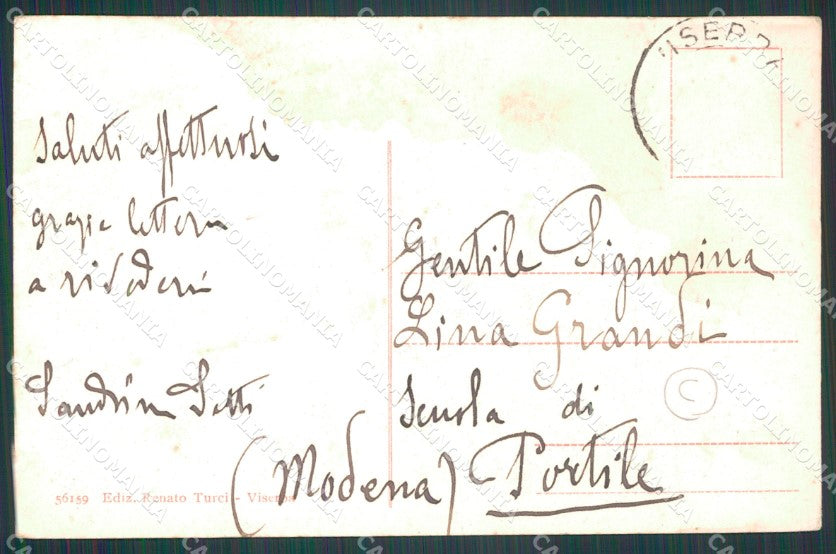 Saluti affettuosi
grazie lettera
a rivederci
Setti
VISERBA
Gentile Signorina
Lina Grandi
Scuola di
(Modena) Portile
C
56159 Ediz. Renato Turci - Viserba
CARTOLINOMANIA